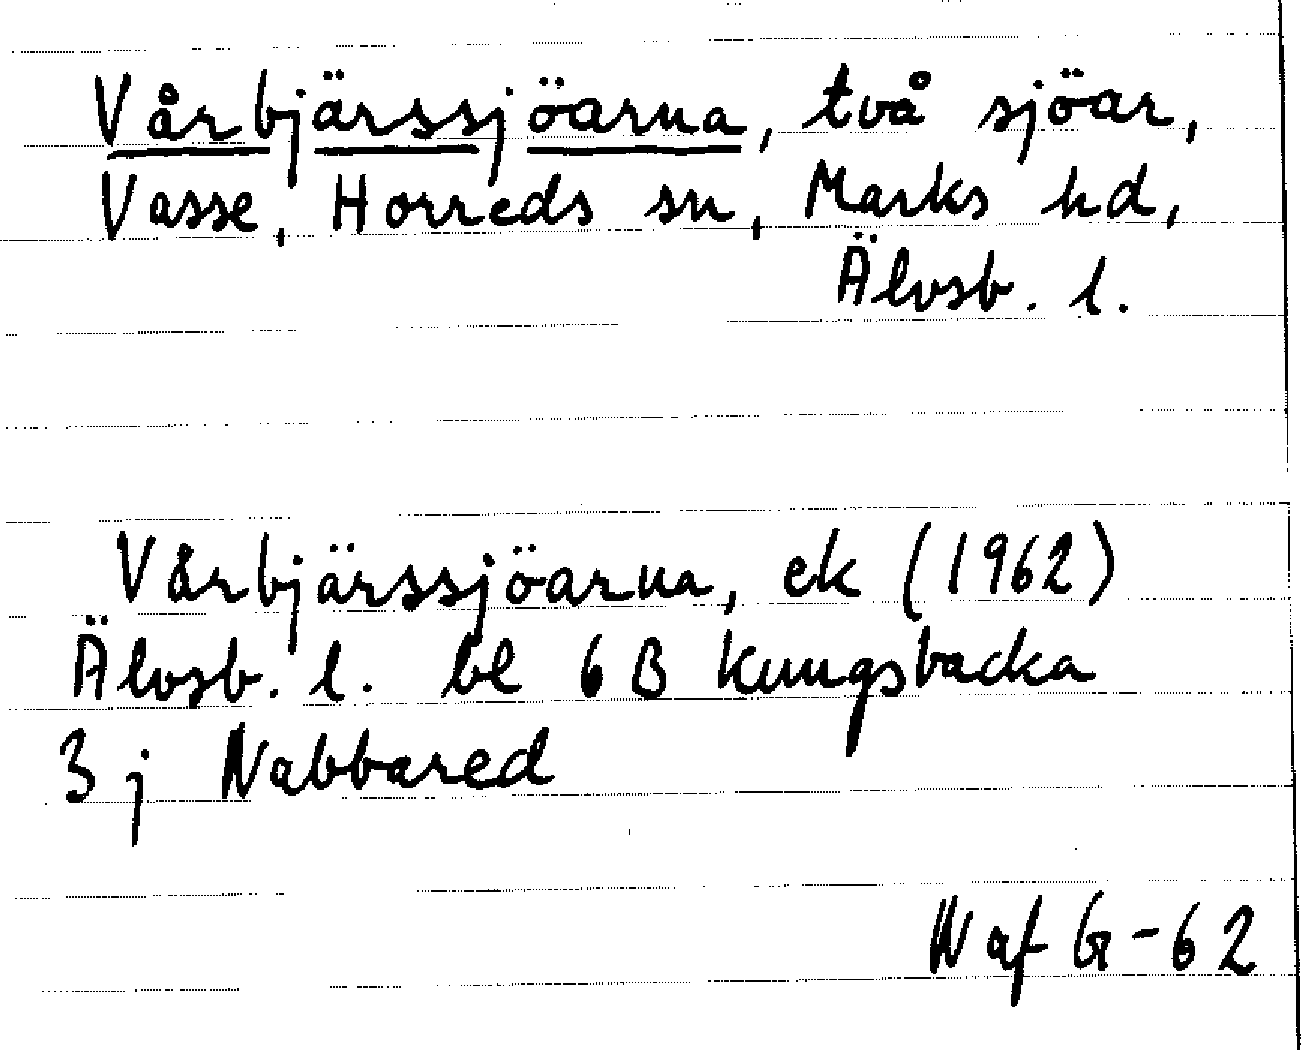 Vårbjärssjöarna, två sjöar,
Vasse, Horreds sn, Marks hd,
Älvsb. l.
Vårbjärssjöarna, ek (1962)
Älvsb. l. bl 6 B Kungsbacka
3 j Nabbared
N af G-62